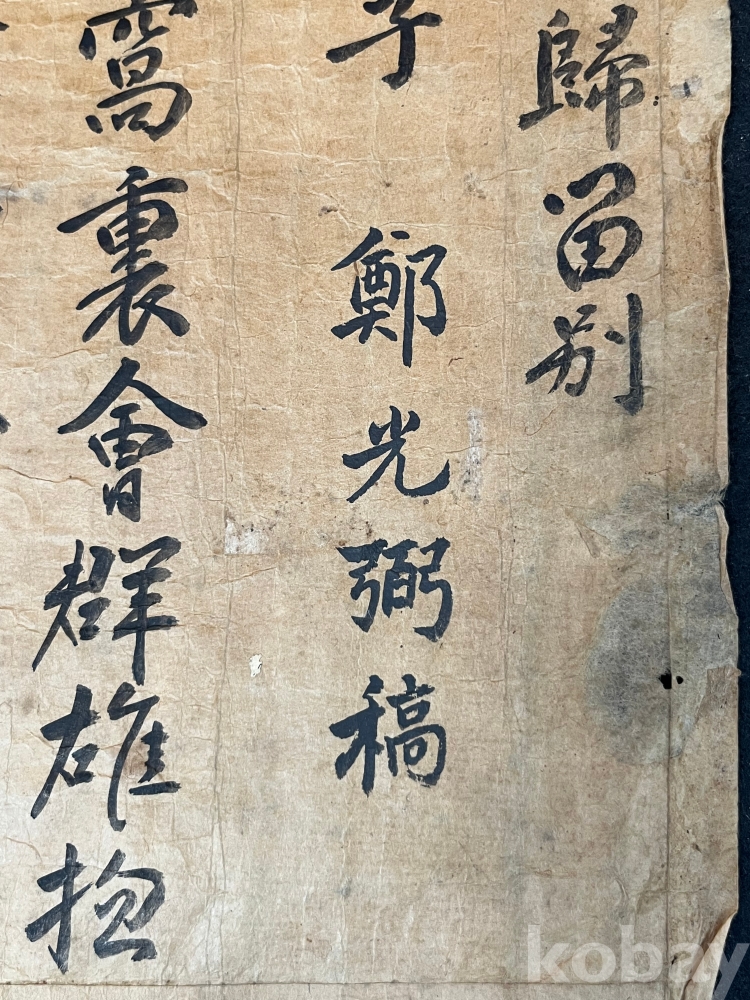 歸留別
子 鄭光弼稿
窩裏會群雄抱
kobay